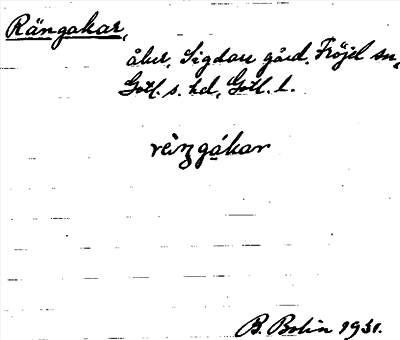 Rängakar,
åker, Sigdarve gård, Fröjel sn,
Gotl. s. hd, Gotl. l.
rèi̯ŋgákar
B. Bolin 1931.